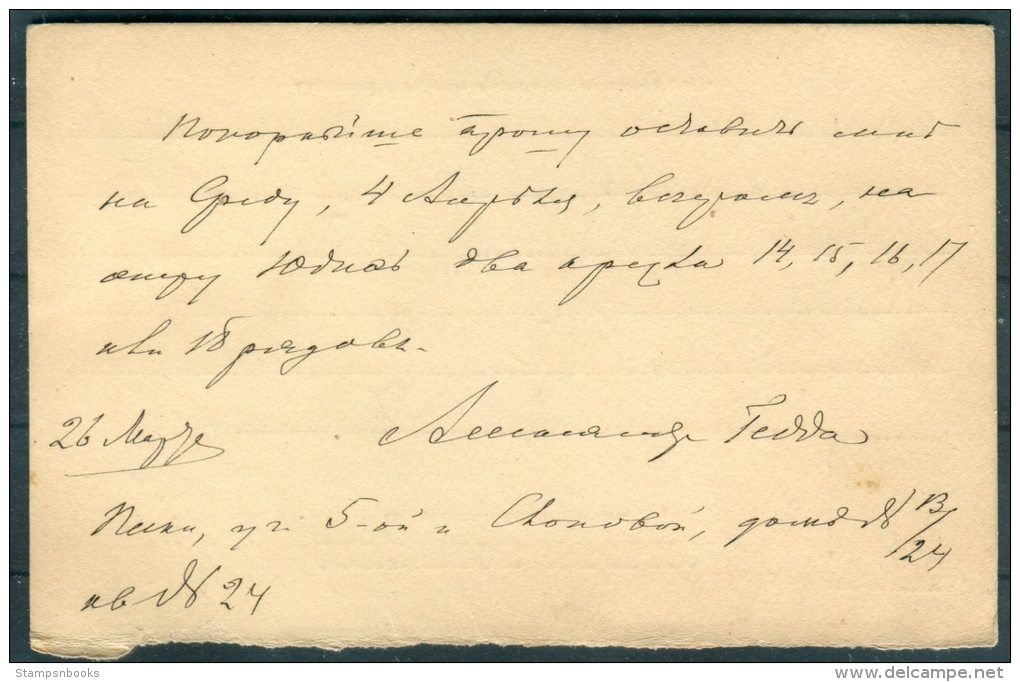 Покорнѣйше прошу оставить мнѣ
на Среду, 4 Апрѣля, вечеромъ, на
оперу Юдиѳь два кресла 14, 15, 16, 17
или 18 рядовъ.
26 Марта Александръ Гедда
Пески, уг. 5-ой и Слоновой, домъ № 13/24
кв № 24
Stampsnbooks
www.delcampe.net